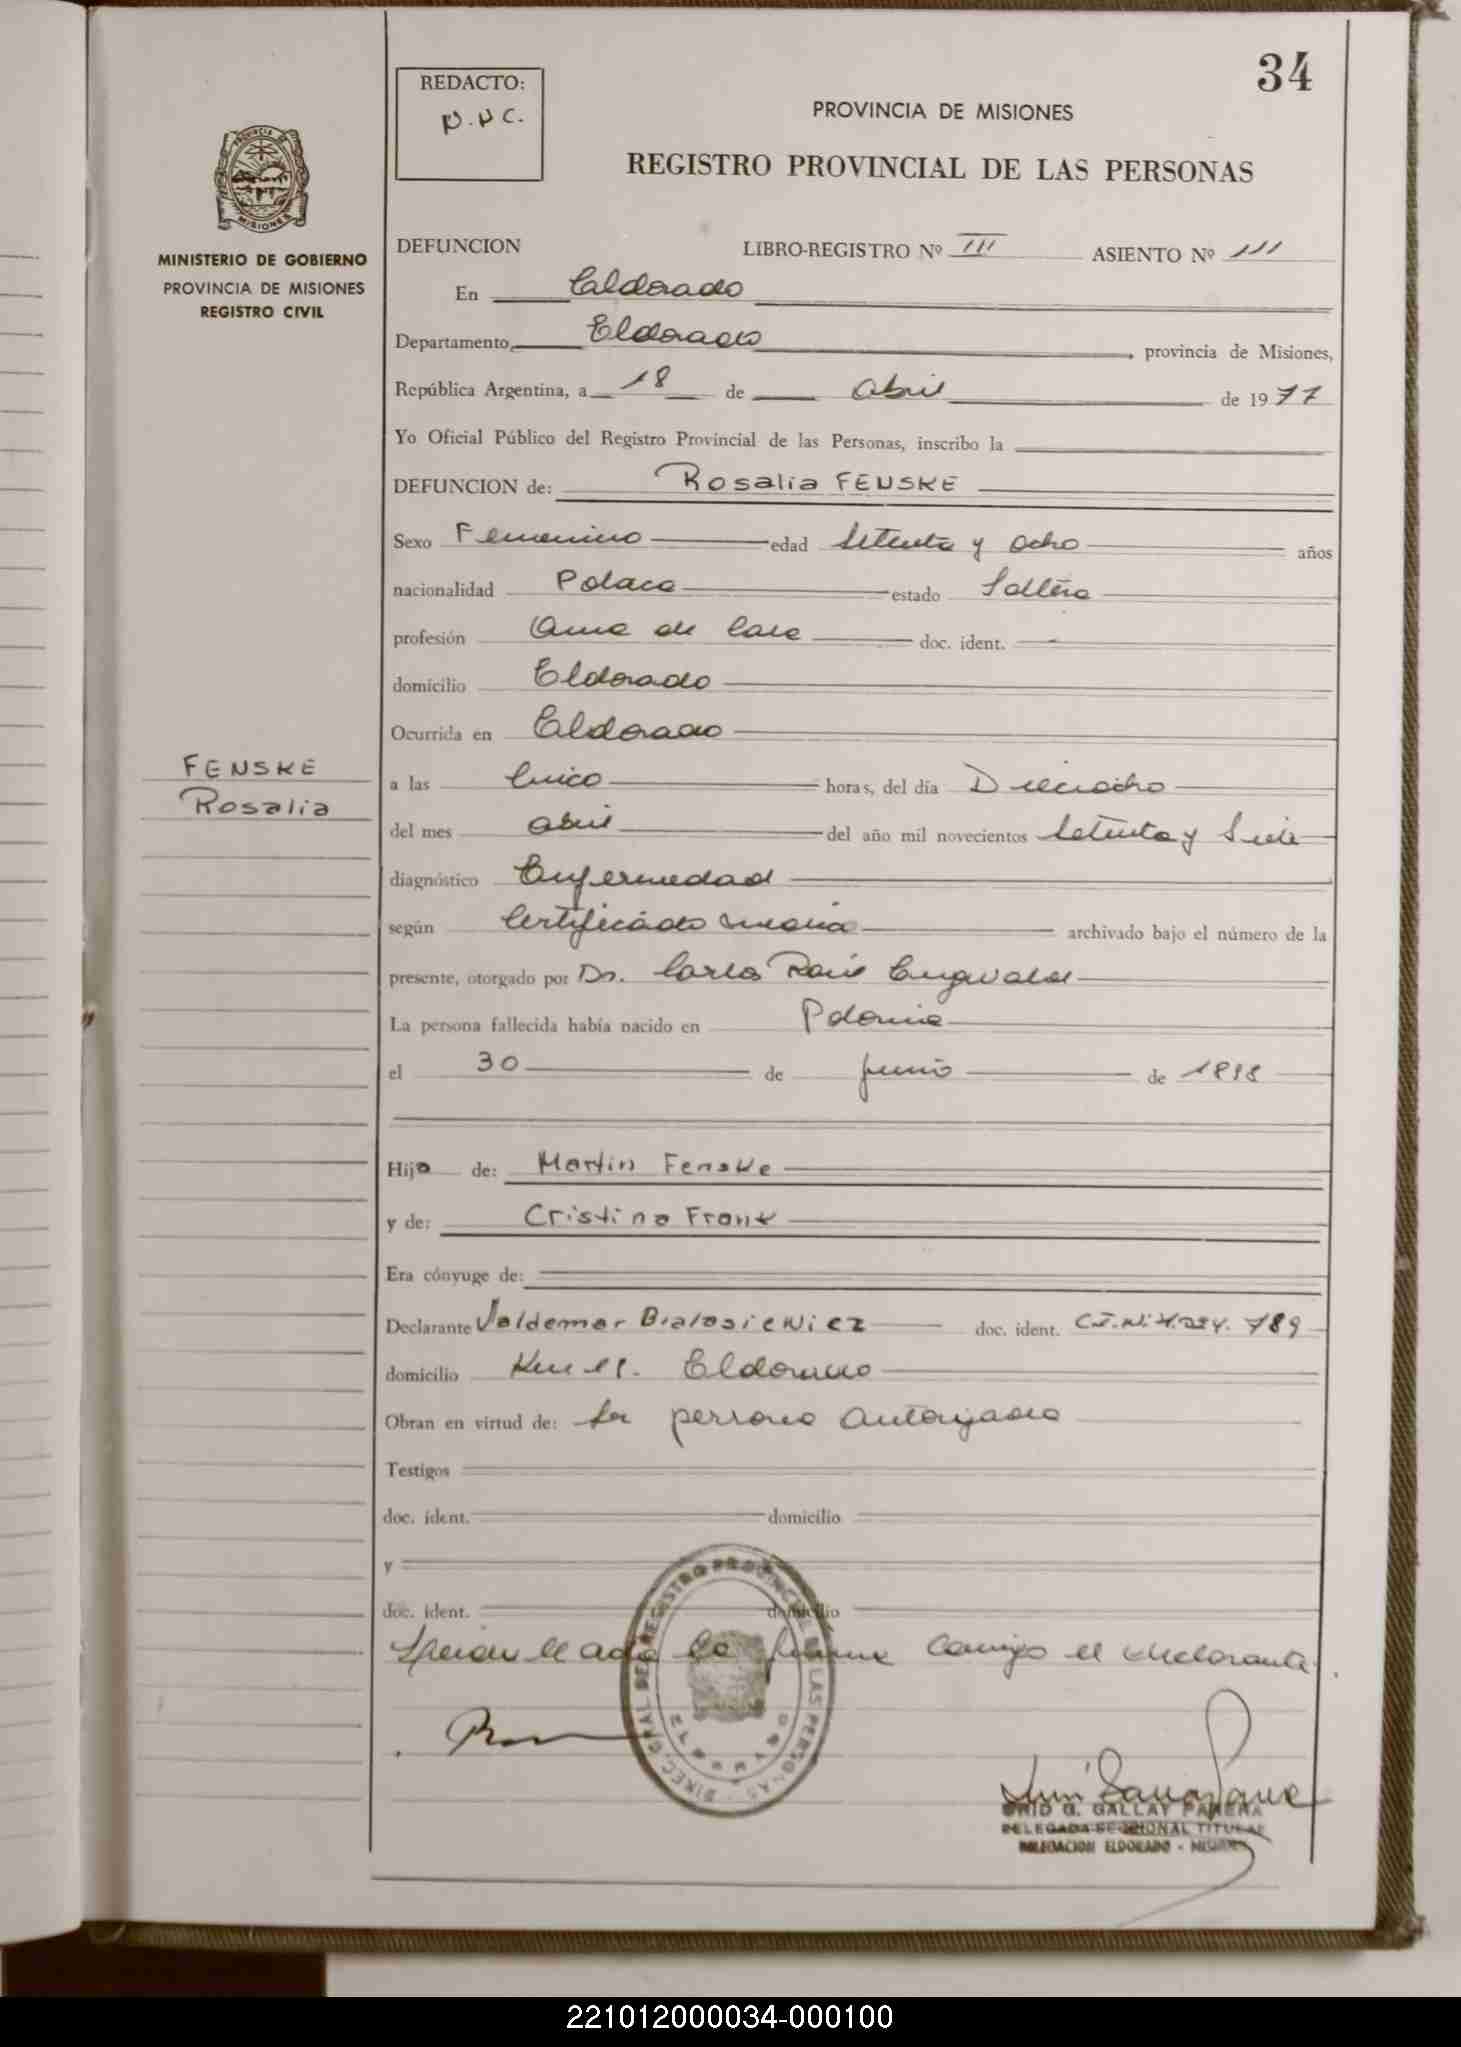 34
REDACTO:
N.N C.
PROVINCIA DE MISIONES
REGISTRO PROVINCIAL DE LAS PERSONAS
PROVINCIA DE
MISIONES
MINISTERIO DE GOBIERNO
PROVINCIA DE MISIONES
REGISTRO CIVIL
DEFUNCION LIBRO-REGISTRO Nº III ASIENTO Nº 111
En Eldorado
Departamento Eldorado, provincia de Misiones,
República Argentina, a 18 de abril de 1977
Yo Oficial Público del Registro Provincial de las Personas, inscribo la
DEFUNCION de: Rosalia FENSKE
Sexo Femenino edad Setenta y ocho años
nacionalidad Polaca estado Soltera
profesión Ama de Casa doc. ident. -
domicilio Eldorado
Ocurrida en Eldorado
FENSKE
Rosalia
a las Cinco horas, del día Dieciocho
del mes abril del año mil novecientos Setenta y Siete
diagnóstico Enfermedad
según Certificado médico archivado bajo el número de la
presente, otorgado por Dr. Carlos Raúl
La persona fallecida había nacido en Polonia
el 30 de junio de 1898
Hija de: Martin Fenske
y de: Cristina Frank
Era cónyuge de:
Declarante Valdemar Bialosiewicz doc. ident. 789
domicilio Eldorado
Obran en virtud de: Ser persona autorizada
Testigos
doc. ident. domicilio
y
doc. ident. domicilio
el acta la firma Conmigo el declarante.
DIREC. GRAL DEL REGISTRO PROVINCIAL DE LAS PERSONAS
ELDORADO
G. GALLAY PARERA
DELEGADA SECCIONAL TITULAR
DELEGACION ELDORADO - MISIONES
221012000034-000100